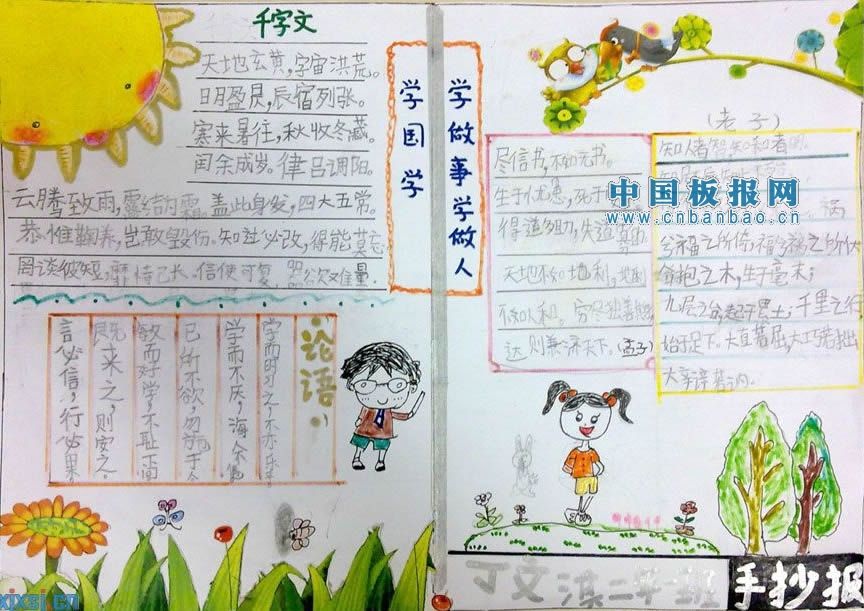 千字文
天地玄黄,宇宙洪荒。
日月盈昃,辰宿列张。
寒来暑往,秋收冬藏。
闰余成岁。律吕调阳。
云腾致雨,露结为霜。盖此身发,四大五常。
恭惟鞠养,岂敢毁伤。知过必改,得能莫忘
罔谈彼短,靡恃己长。信使可复,器欲难量
论语:
学而时习之,不亦乐
学而不厌,诲人不倦
己所不欲,勿施于人
敏而好学,不耻下问
既来之,则安之。
言必信,行必果
学国学
学做事学做人
尽信书,不如无书。
生于忧患,死于
得道多助,失道寡助
天地不如地利,地利
不如人和。穷尽独善其
达则兼济天下。(孟子)
(老子)
知人者智,知者明。
祸
兮福之所倚,福兮祸之所伏
合抱之木,生于毫末;
九层之台,起于累土;千里之行
始于足下。大直若屈,大巧若拙
大辛
中国板报网
www.cnbanbao.cn
丁文淇二年一班
手抄报
xixsj.cn